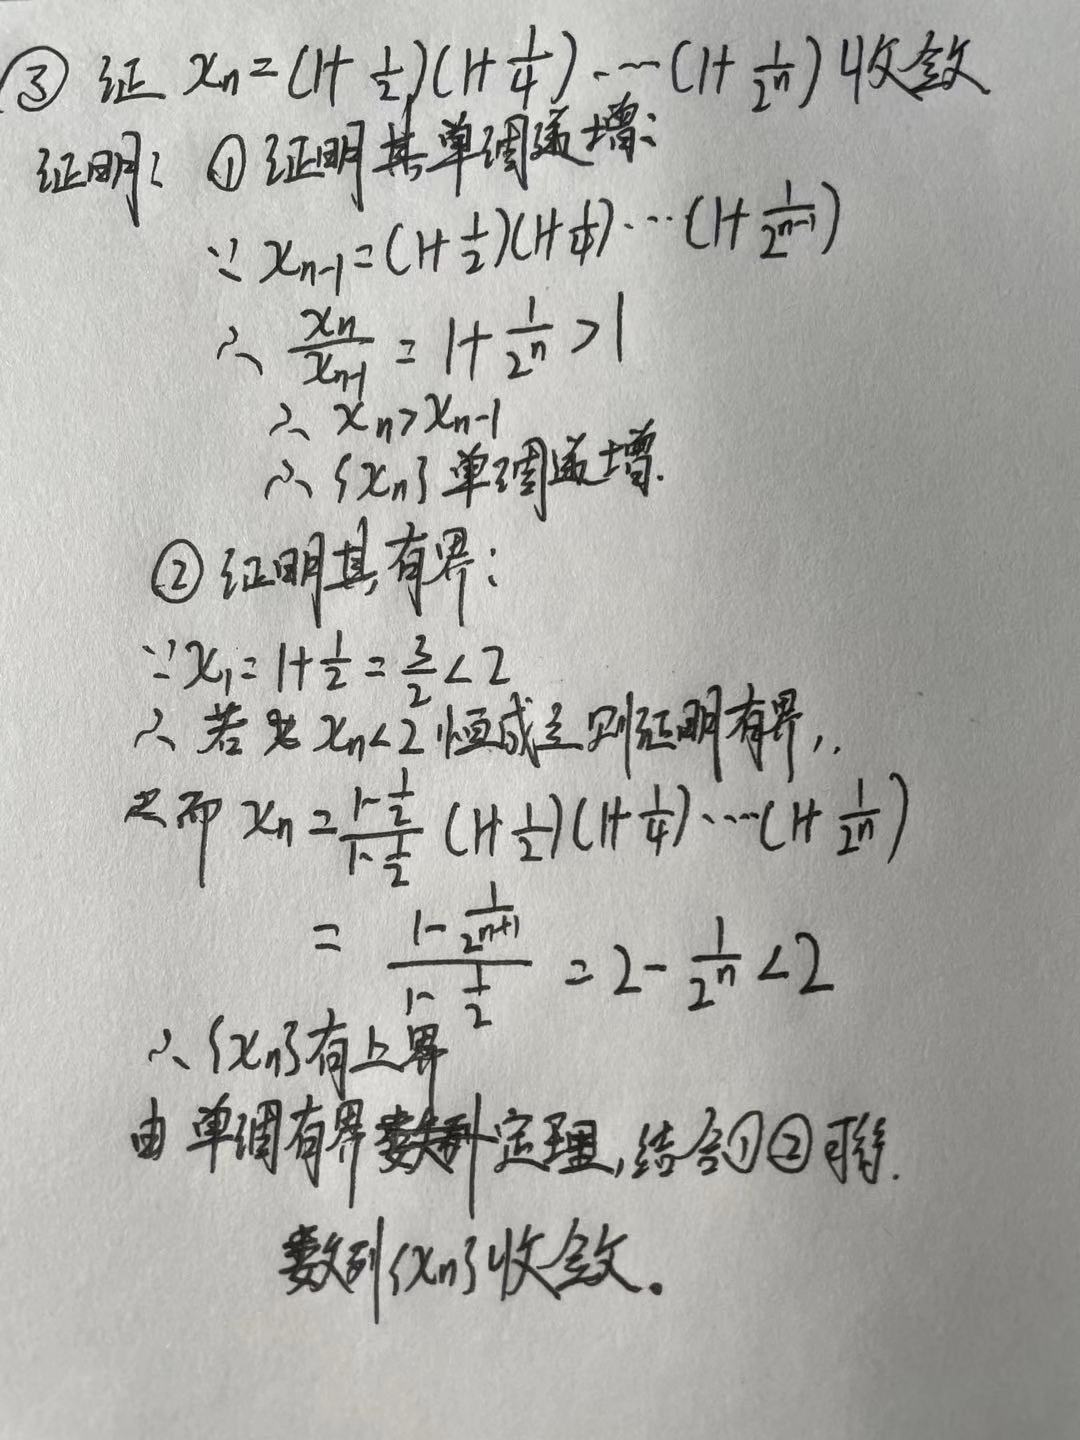 ③ 证 xₙ=(1+1/2)(1+1/4)……(1+1/2ⁿ)收敛
证明: ①证明其单调递增:
∵ xₙ₋₁=(1+1/2)(1+1/4)…(1+1/2ⁿ⁻¹)
∴ xₙ/xₙ₋₁ = 1+1/2ⁿ >1
∴ xₙ>xₙ₋₁
∴ {xₙ}单调递增.
②证明其有界:
∵x₁=1+1/2=3/2<2
∴ 若 xₙ<2恒成立则证明有界,.
而 xₙ=(1-1/2)/(1-1/2) (1+1/2)(1+1/4)……(1+1/2ⁿ)
= (1-1/2ⁿ⁺¹)/(1-1/2) =2-1/2ⁿ<2
∴{xₙ}有上界
由单调有界数列定理,结合①②可得.
数列{xₙ}收敛。